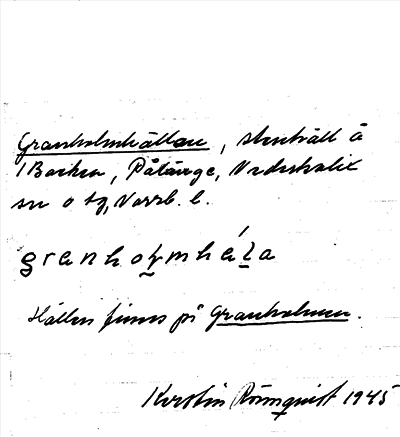 Granholmhällan, stenhäll å
Backen, Påläng, Nederkalix
sn o tg, Norrb. l.
grenhoḷmhéḷa
Hällen finns på Granholmen.
Kerstin Rönnquist 1945